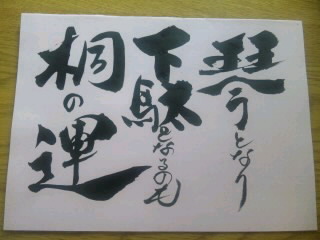 琴となり
下駄となるのも
桐の運